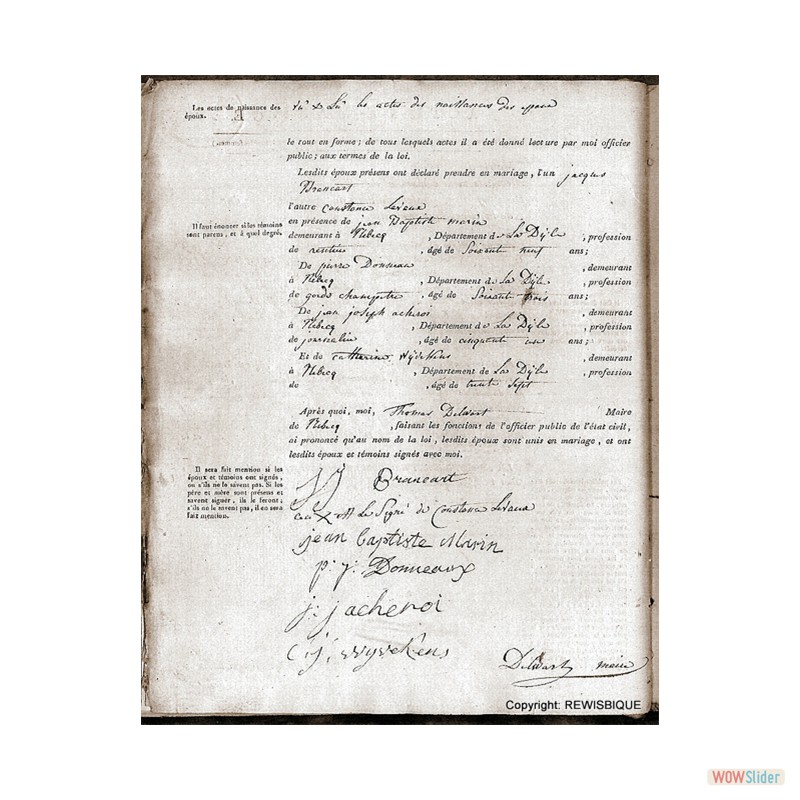 Les actes de naissance des
époux.
vu & Lu les actes des naissances des epoux
le tout en forme; de tous lesquels actes il a été donné lecture par moi officier
public; aux termes de la loi.
Lesdits époux présens ont déclaré prendre en mariage, l'un jacques
Brancart
l'autre Constance Levaux
Il faut énoncer si les témoins
sont parens, et à quel degré.
en présence de jean Baptiste marin
demeurant à Rebecq , Département de La Dyle , profession
de rentier , âgé de Soixant neuf ans;
De pierre Donneau , demeurant
à Rebecq , Département de La Dyle , profession
de garde champetre , âgé de Soixant trois ans;
De jean joseph acheroi , demeurant
à Rebecq , Département de La Dyle , profession
de journalier , âgé de cinquant ans;
Et de Catherine demeurant
à Rebecq , Département de La Dyle , profession
de , âgé de trente Sept
Après quoi, moi, Thomas Delwart Maire
de Rebecq , faisant les fonctions de l'officier public de l'état civil,
ai prononcé qu'au nom de la loi, lesdits époux sont unis en mariage, et ont
lesdits époux et témoins signés avec moi.
Il sera fait mention si les
époux et témoins ont signés,
ou s'ils ne le savent pas. Si les
père et mère sont présens et
savent signer, ils le feront;
s'ils ne le savent pas, il en sera
fait mention.
JJ Brancart
ceci X est Le Signé de Constance Levaux
jean baptiste Marin
p. j. Donneaux
j. j acheroi
c. j. wyvekens
Delwart maire
Copyright: REWISBIQUE
WOWSlider